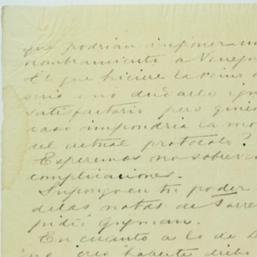 que podrian imponer un
nombramiento a Venez
El que hiciere la
seria no dudarlo
satisfactorio pero quien
caso impondria la mo
del actual protocolo?
Esperemos no sobreven
complicaciones.
Supongo en tu poder
de las notas de Torre
pidió Guzman.
En cuanto a lo de
no creo haberte dicho